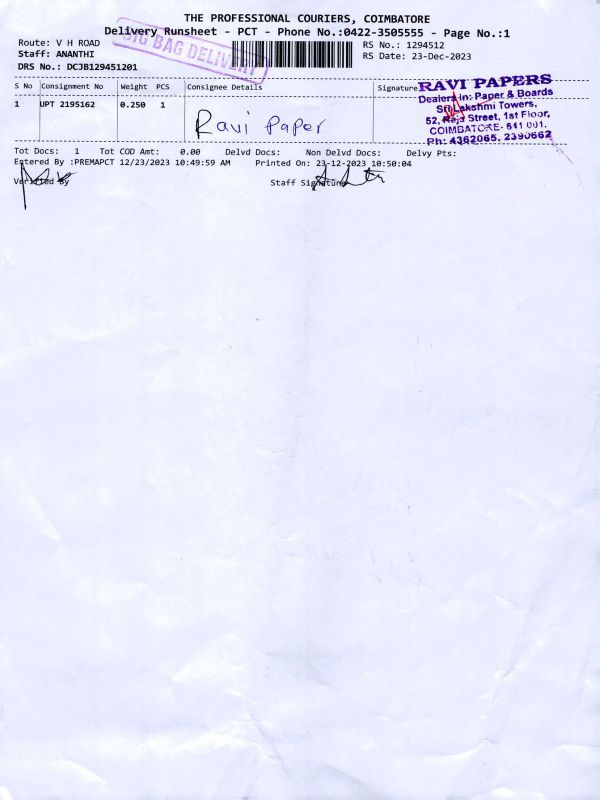 THE PROFESSIONAL COURIERS, COIMBATORE
Delivery Runsheet - PCT - Phone No.:0422-3505555 - Page No.:1
BIG BAG DELIVERY
Route: V H ROAD
Staff: ANANTHI
DRS No.: DCJB129451201
RS No.: 1294512
RS Date: 23-Dec-2023
S No Consignment No Weight PCS Consignee Details Signature
1 UPT 2195162 0.250 1
Ravi Paper
RAVI PAPERS
Dealers in: Paper & Boards
Sri Lakshmi Towers,
52, Raja Street, 1st Floor,
COIMBATORE- 641 001.
Ph: 4362065, 2390662
Tot Docs: 1 Tot COD Amt: 0.00 Delvd Docs: Non Delvd Docs: Delvy Pts:
Entered By :PREMAPCT 12/23/2023 10:49:59 AM Printed On: 23-12-2023 10:50:04
Verified By Staff Signature